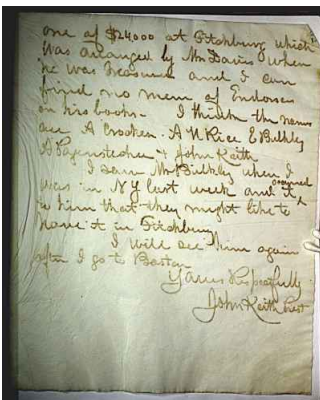 one of $24000 at Fitchburg which
was arranged by Mr Davis when
he was Treasurer and I can
find no mem of Endorser
on his books - I think the names
are A Crocker. A N Rice E Bulkley
A Pagenstecher & John Keith
I saw Mr Bulkley when I
was in NY last week and it occurred
to him that they might like to
have it in Fitchburg
I will see him again
after I go to Boston
Yours Respectfully
John Keith Prest